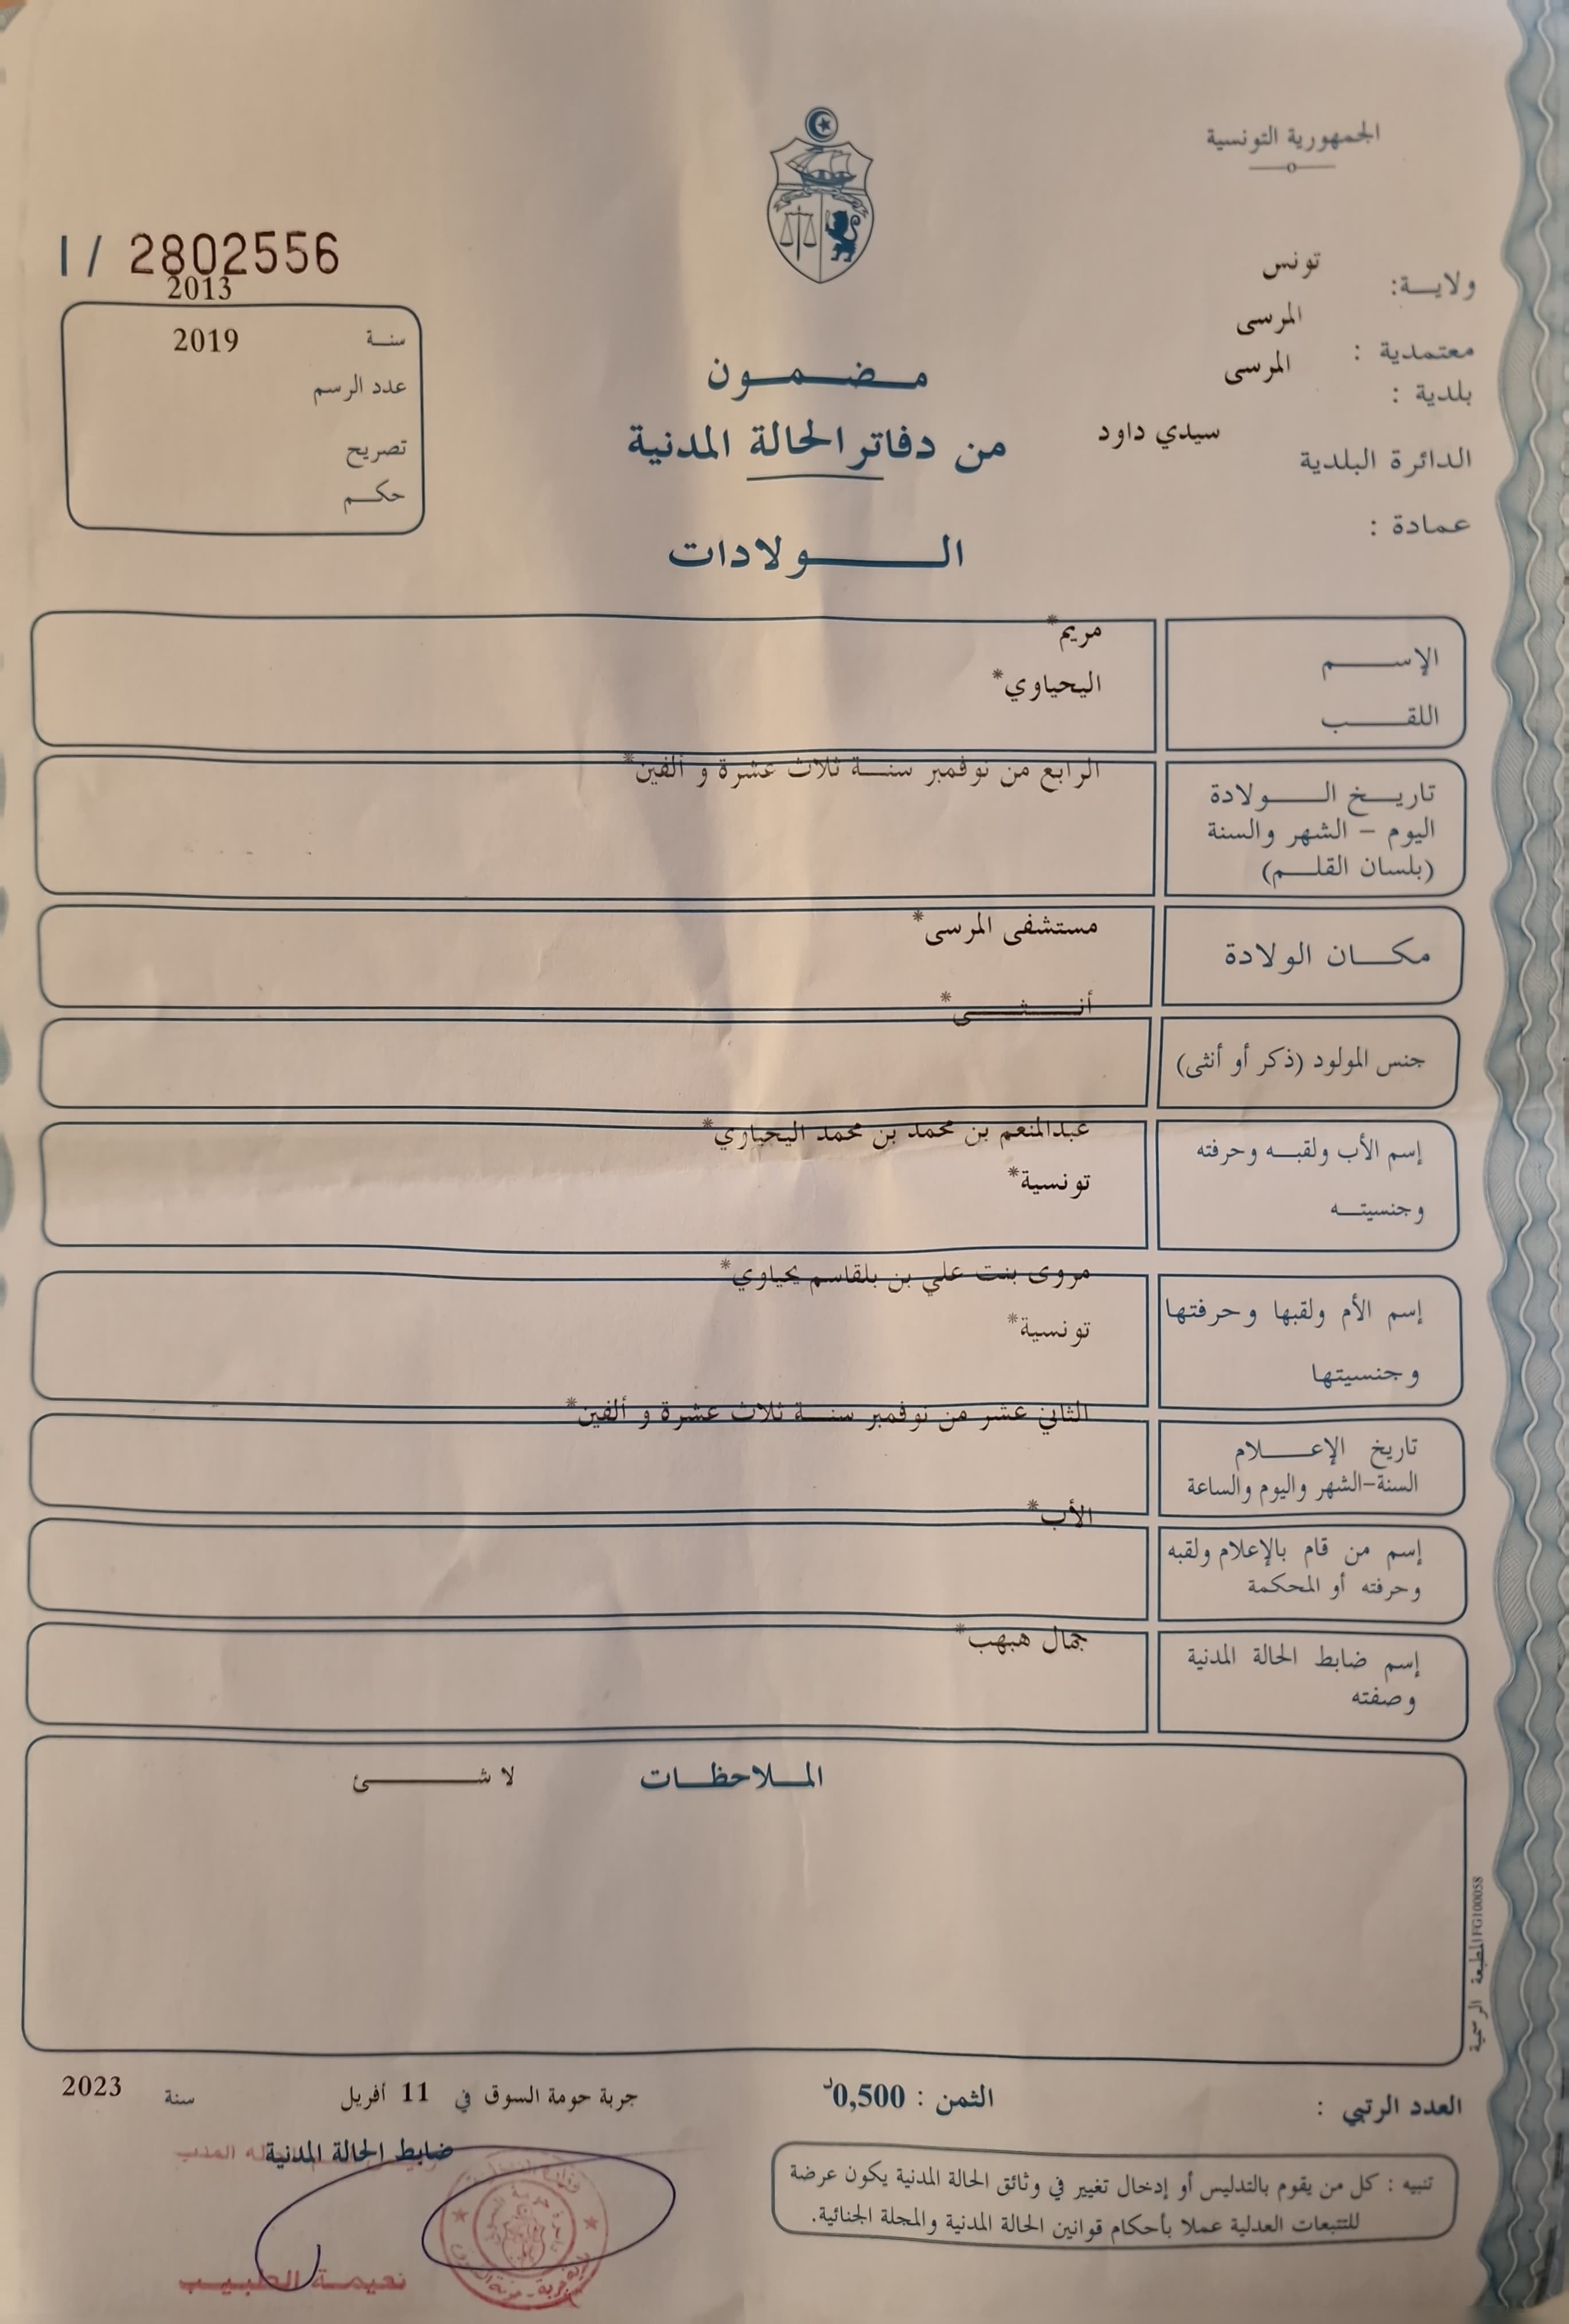 الجمهورية التونسية
ولايـــة: تونس
معتمدية : المرسى
بلدية : المرسى
الدائرة البلدية سيدي داود
عمادة :
مـضـمـون
من دفاتر الحالة المدنية
الـــولادات
I / 2802556
2013
سنـة 2019
عدد الرسم
تصريح
حكـم
الإســـم مريم*
اللقـــب اليحياوي*
تاريـخ الـــولادة الرابع من نوفمبر سنـة ثلاث عشرة و ألفين*
اليوم – الشهر والسنة
(بلسان القلـم)
مكـان الولادة مستشفى المرسى*
جنس المولود (ذكر أو أنثى) أنـــثـــى*
إسم الأب ولقبـه وحرفته عبدالمنعم بن محمد بن محمد اليحياوي*
وجنسيتـه تونسية*
إسم الأم ولقبها وحرفتها مروى بنت علي بن بلقاسم يحياوي*
وجنسيتها تونسية*
تاريخ الإعـــلام الثاني عشر من نوفمبر سنـة ثلاث عشرة و ألفين*
السنة-الشهر واليوم والساعة
إسم من قام بالإعلام ولقبه الأب*
وحرفته أو المحكمة
إسم ضابط الحالة المدنية جمال هبهب*
وصفته
المـلاحظـات لا شـــئ
المطبعة الرسمية FG100058
العدد الرتبي :
الثمن : 0,500د
جربة حومة السوق في 11 أفريل سنة 2023
ضابط الحالة المدنية
نعيمـة الطبيـب
تنبيه : كل من يقوم بالتدليس أو إدخال تغيير في وثائق الحالة المدنية يكون عرضة
للتتبعات العدلية عملا بأحكام قوانين الحالة المدنية والمجلة الجنائية.